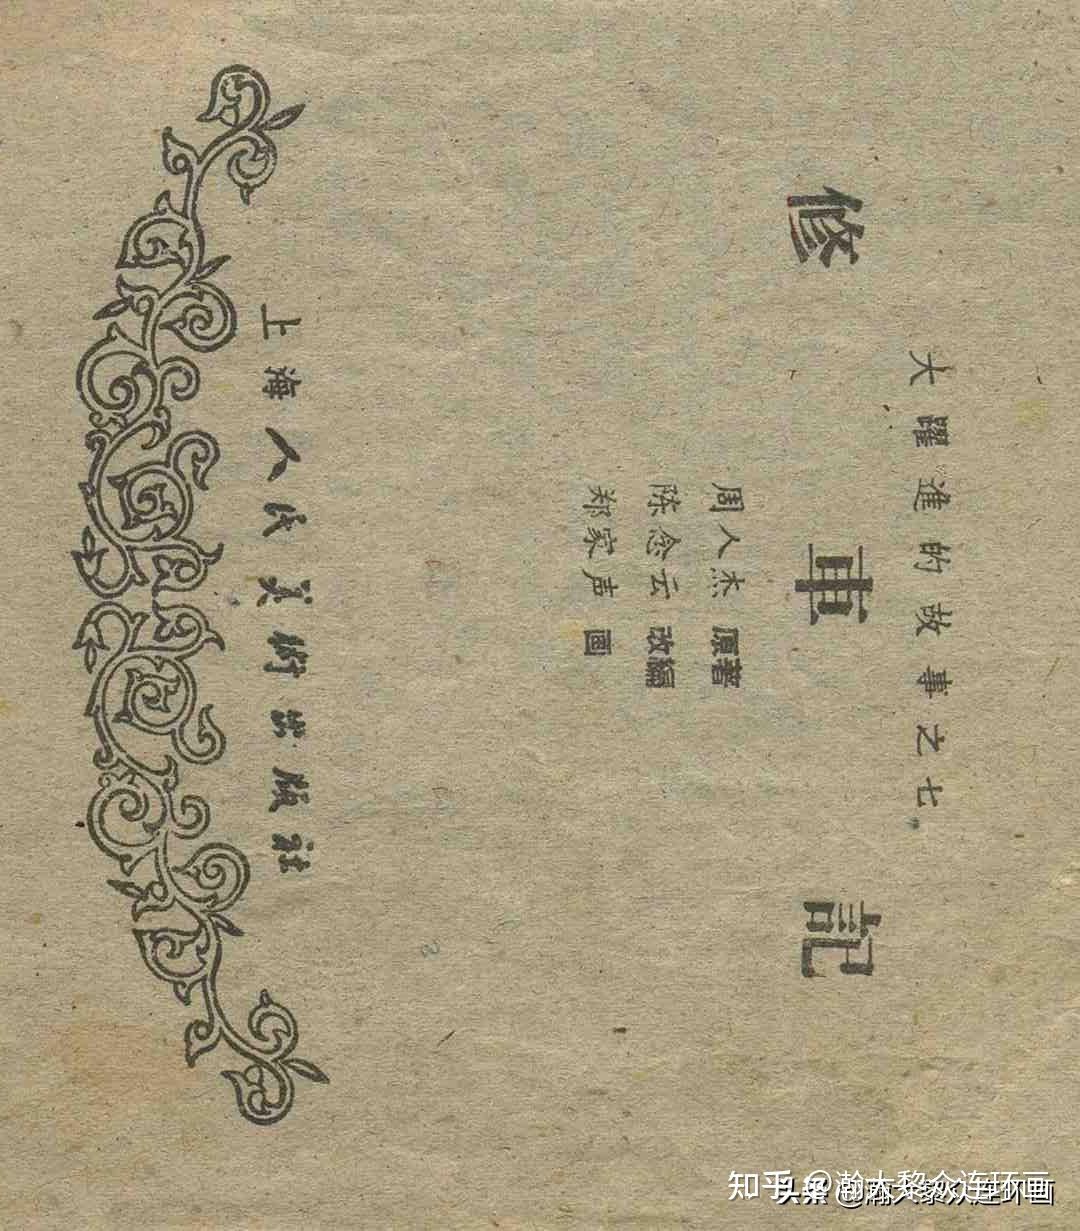 大躍進的故事之七
修車記
周人杰 原著
陈念云 改編
郑家声 画
上海人民美術出版社
知乎 @瀚大黎众连环画
头条 @瀚大黎众连环画